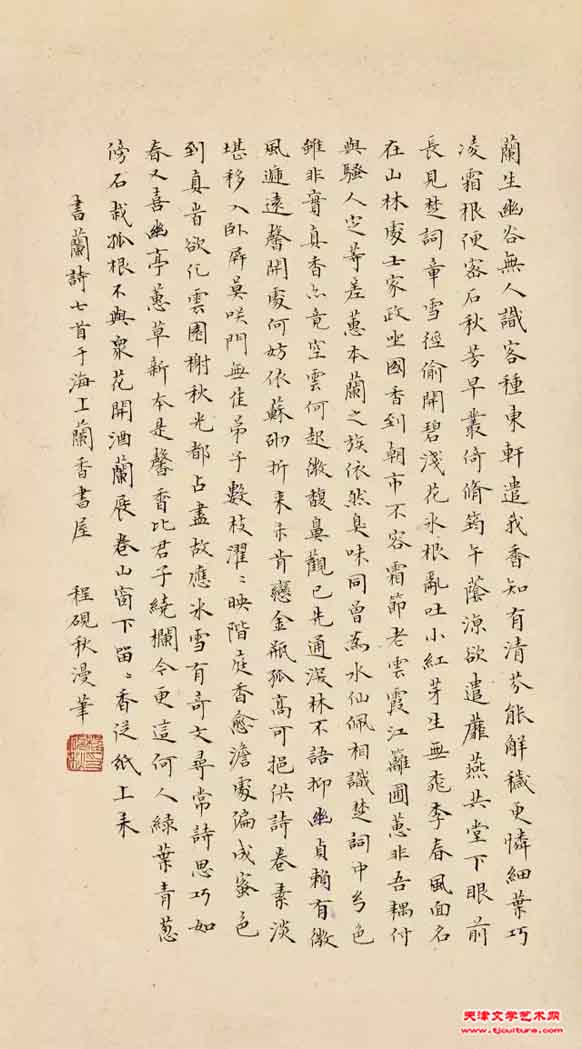 蘭生幽谷無人識客種東軒遣我香知有清芬能解穢更憐細葉巧
凌霜根便客石秋芳早叢倚脩筠午蔭凉欲遣蘼燕共堂下眼前
長見楚詞章雪徑偷開碧淺花氷根亂吐小紅芽生無桃李春風面名
在山林處士家政坐國香到朝市不容霜節老雲霞江蘺圃蕙非吾耦付
與騷人定等差蕙本蘭之族依然臭味同曾為水仙佩相識楚詞中兮色
雖非實真香亦竟空雲何起微馥鼻觀已先通深林不語抑幽貞賴有微
風遞遠馨開處何妨依蘇砌折来未肯戀金瓶孤高可挹供詩卷素淡
堪移入卧屏莫咲門無佳弟子數枝濯〻映階庭香愈澹處偏成蜜色
到真皆欲化雲園榭秋光都占盡故應冰雪有奇文尋常詩思巧如
春又喜幽亭蕙草新本是馨香比君子繞欄今更這何人緑葉青葱
傍石栽孤根不與衆花開酒蘭展卷山窗下習〻香從紙上来
書蘭詩七首于海上蘭香書屋 程硯秋漫筆
天津文学艺术网
www.tjculture.com